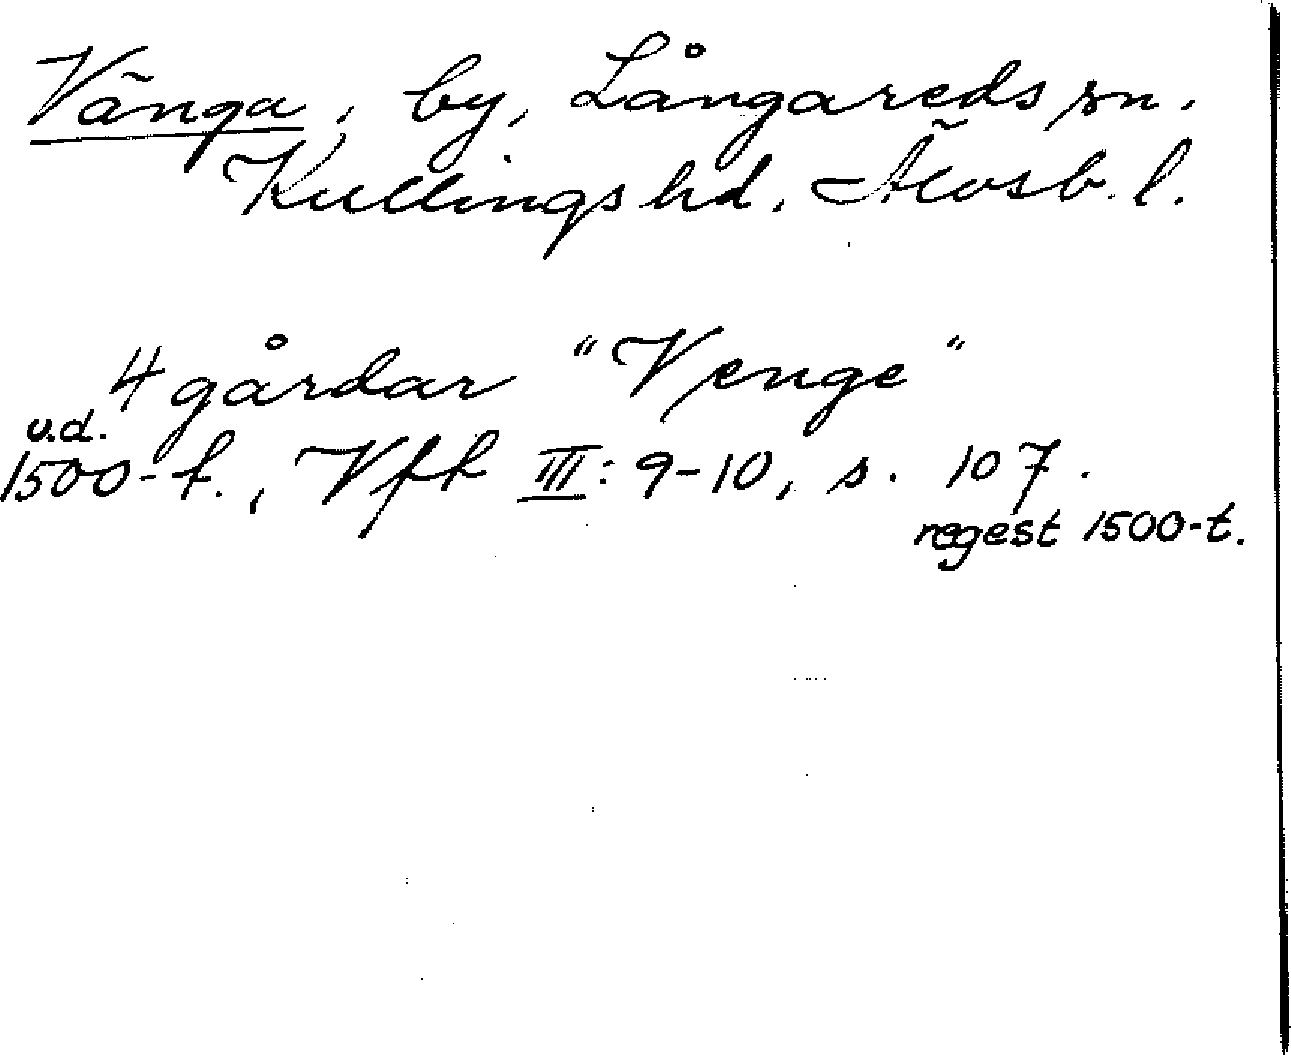 Vänga, by, Långareds sn.
Kullings hd, Älvsb. l.
4 gårdar "Venge"
u.d.
1500-t., Vft III: 9-10, s. 107.
regest 1500-t.